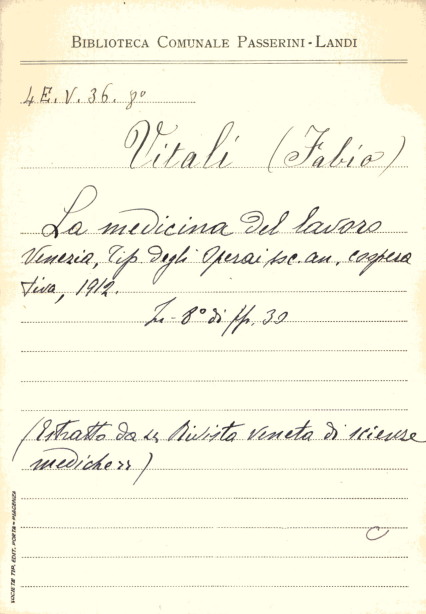 BIBLIOTECA COMUNALE PASSERINI-LANDI
4 E. V. 36. 8º
Vitali (Fabio)
La medicina del lavoro
Venezia, Tip. degli Operai soc. an. coopera
tiva, 1912.
In-8º di pp. 30
(Estratto da "Rivista veneta di scienze
mediche")
SOCIETÀ TIP. EDIT. PORTA - PIACENZA